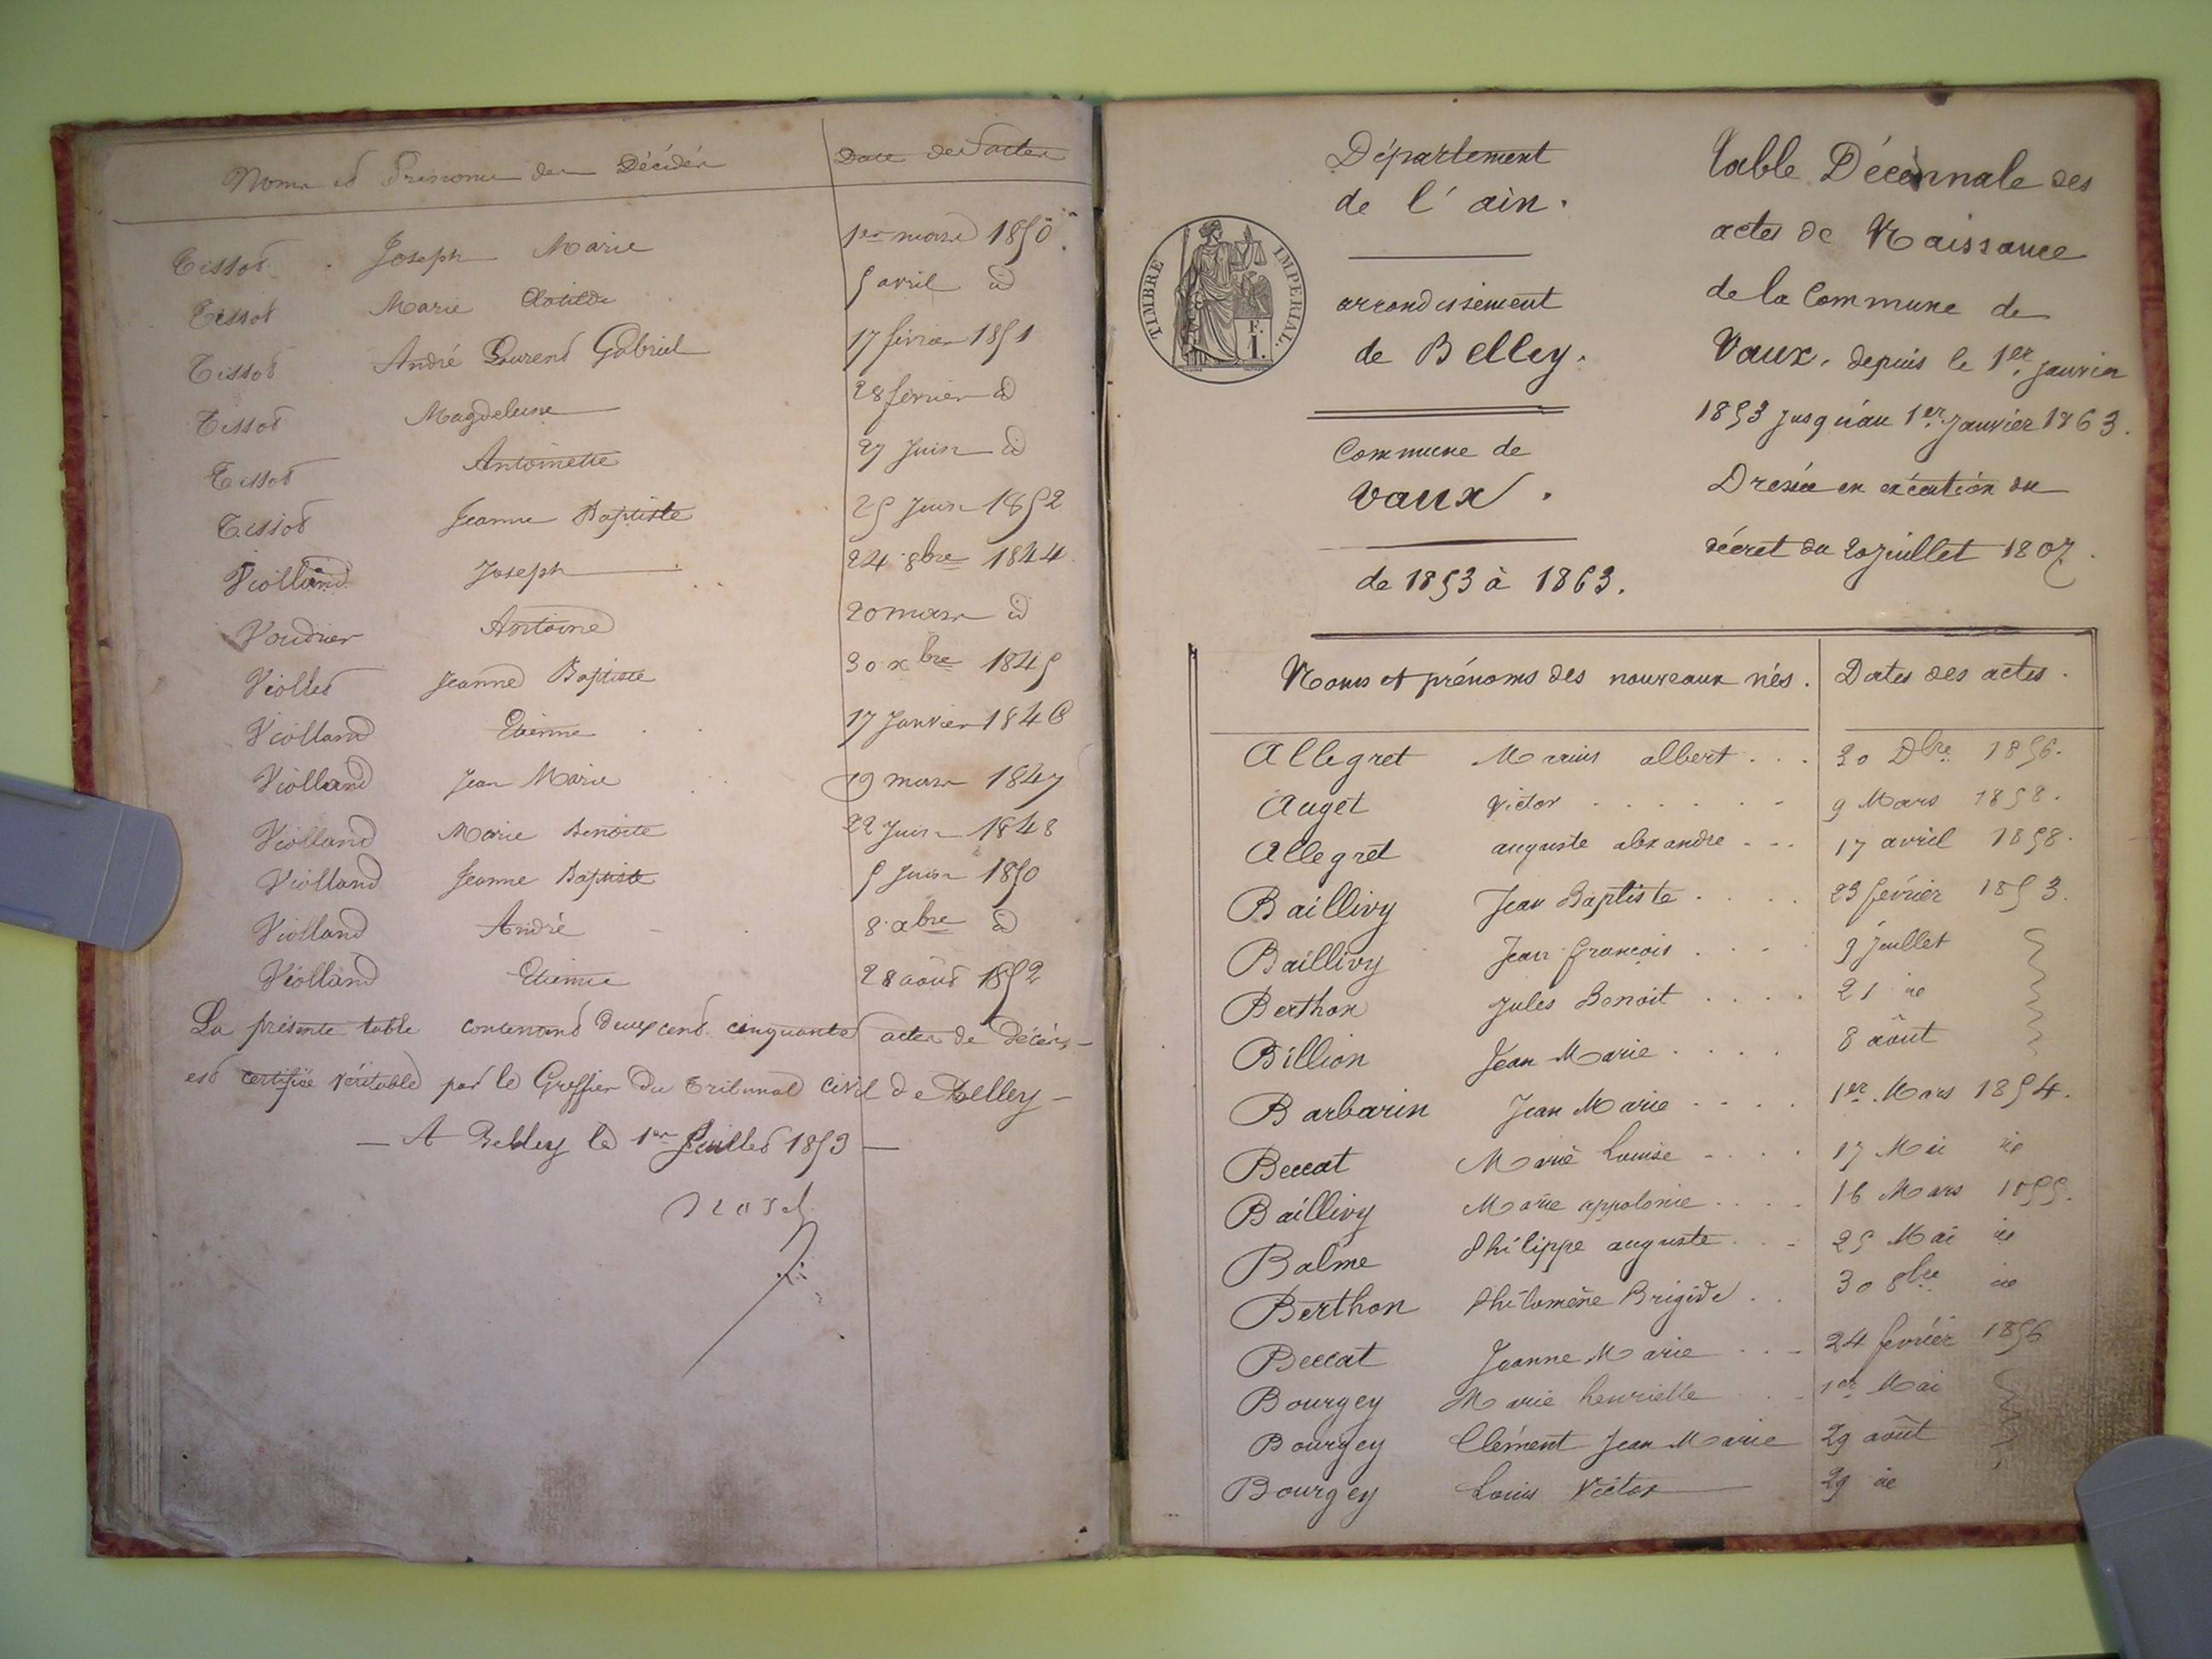 Noms et Prénoms des Décédés Date des actes
Tissot Joseph Marie 1er mars 1850
Tissot Marie Clotilde 5 avril id
Tissot André Laurent Gabriel 17 février 1851
Tissot Magdeleine 28 février id
Tissot Antoinette 27 Juin id
Tissot Jeanne Baptiste 25 Juin 1852
Violland Joseph 24 8bre 1844
Voudrier Antoine 20 mars id
Viollet Jeanne Baptiste 30 xbre 1845
Violland Etienne 17 Janvier 1846
Violland Jean Marie 19 mars 1847
Violland Marie Benoite 22 Juin 1848
Violland Jeanne Baptiste 5 Juin 1850
Violland André 8 xbre id
Violland Etienne 28 août 1852
La présente table contenant deux cent cinquante actes de Décès,
est certifiée véritable par le Greffier du tribunal civil de Belley
A Belley le 1er Juillet 1853
Département
de l'ain.
TIMBRE IMPERIAL.
F.
1.
arrondissement
de Belley.
Commune de
Vaux.
de 1853 à 1863.
Table Décennale des
actes de Naissance
de la Commune de
Vaux, depuis le 1er Janvier
1853 jusqu'au 1er Janvier 1863.
Dressée en exécution du
décret du 20 Juillet 1807.
Noms et prénoms des nouveaux nés. Dates des actes.
Allegret Marius albert . . . 30 Dbre 1856.
Auget Victor . . . . . . 9 Mars 1858.
Allegret auguste alexandre . . . 17 avril 1858.
Baillivy Jean Baptiste . . . . 23 février 1853.
Baillivy Jean françois . . . 9 Juillet
Berthon Jules Benoit . . . . 21 id
Billion Jean Marie . . . . 8 août
Barbarin Jean Marie . . . . 1er Mars 1854.
Beccat Marie Louise . . . . 17 Mai id
Baillivy Marie appolonie . . . . 16 Mars 1855.
Balme Philippe auguste . . . 25 Mai id
Berthon Philomène Brigide . . 30 8bre id
Beccat Jeanne Marie . . . 24 février 1856
Bourgey Marie henriette . . . 1er Mai
Bourgey Clément Jean Marie 29 août
Bourgey Louis Victor 29 id